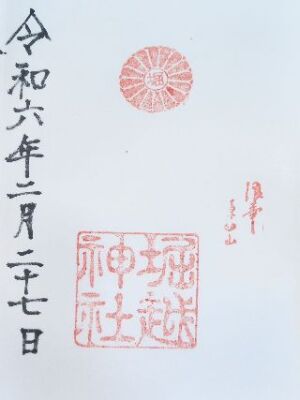 堀
堀越
神社
令和六年二月二十七日